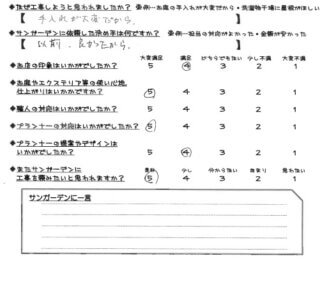 ◆なぜ工事しようと思われましたか？ ※例…お庭の手入れが大変だから・洗濯物干場に屋根がほしい
【 手入れが大変だから。 】
◆サンガーデンに依頼した決め手は何ですか？ ※例…担当の対応がよかった・金額が安かった
【 以前、良かったから。 】
大変満足 満足 どちらでもない 少し不満 大変不満
◆お店の印象はいかがでしたか？ 5 4 3 2 1
◆お庭やエクステリア等の使い心地、
仕上がりはいかがですか？ 5 4 3 2 1
◆職人の対応はいかがでしたか？ 5 4 3 2 1
◆プランナーの対応はいかがでしたか？ 5 4 3 2 1
◆プランナーの提案やデザインは
いかがでしたか？ 5 4 3 2 1
◆またサンガーデンに 思う 少し 分からない あまり 思わない
工事を頼みたいと思われますか？ 5 4 3 2 1
サンガーデンに一言